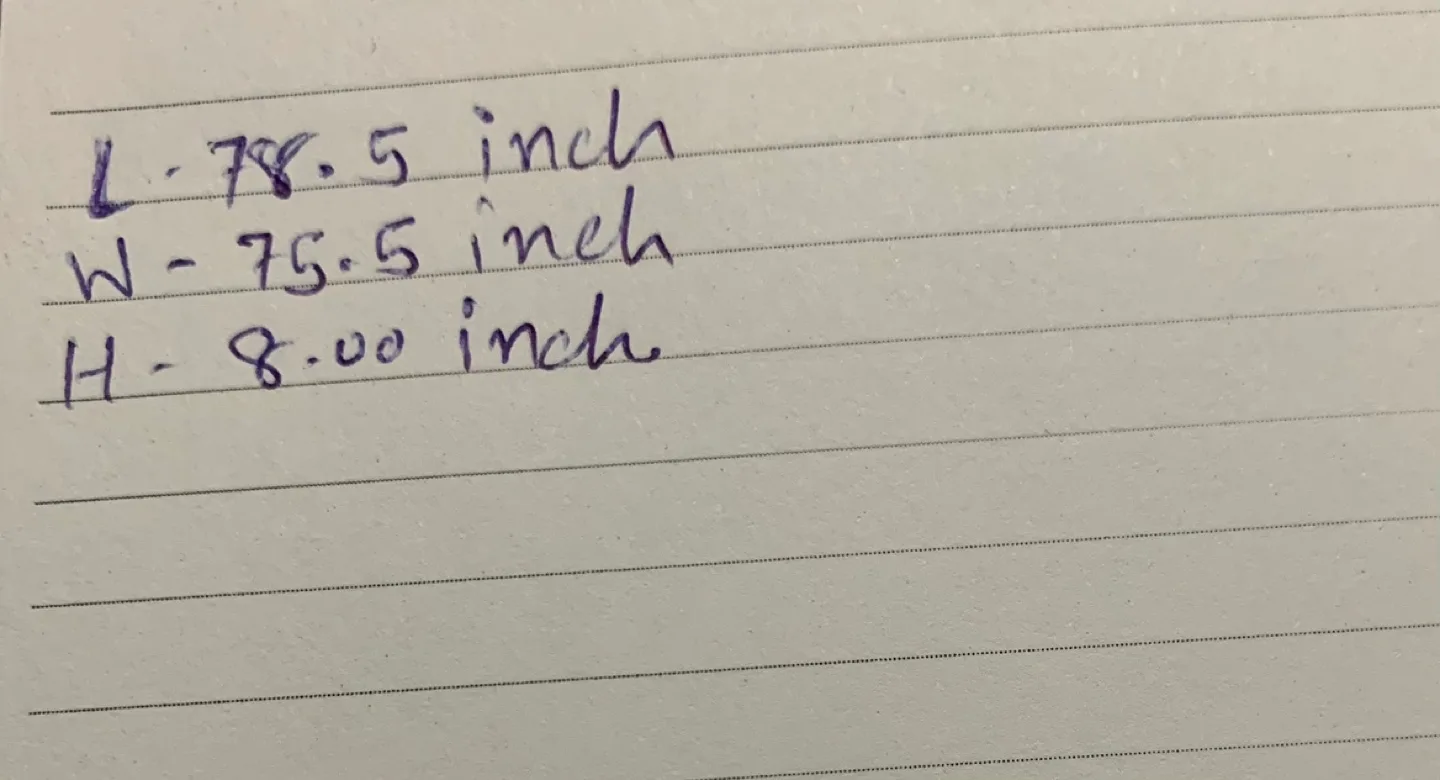 L - 78.5 inch
W - 75.5 inch
H - 8.00 inch